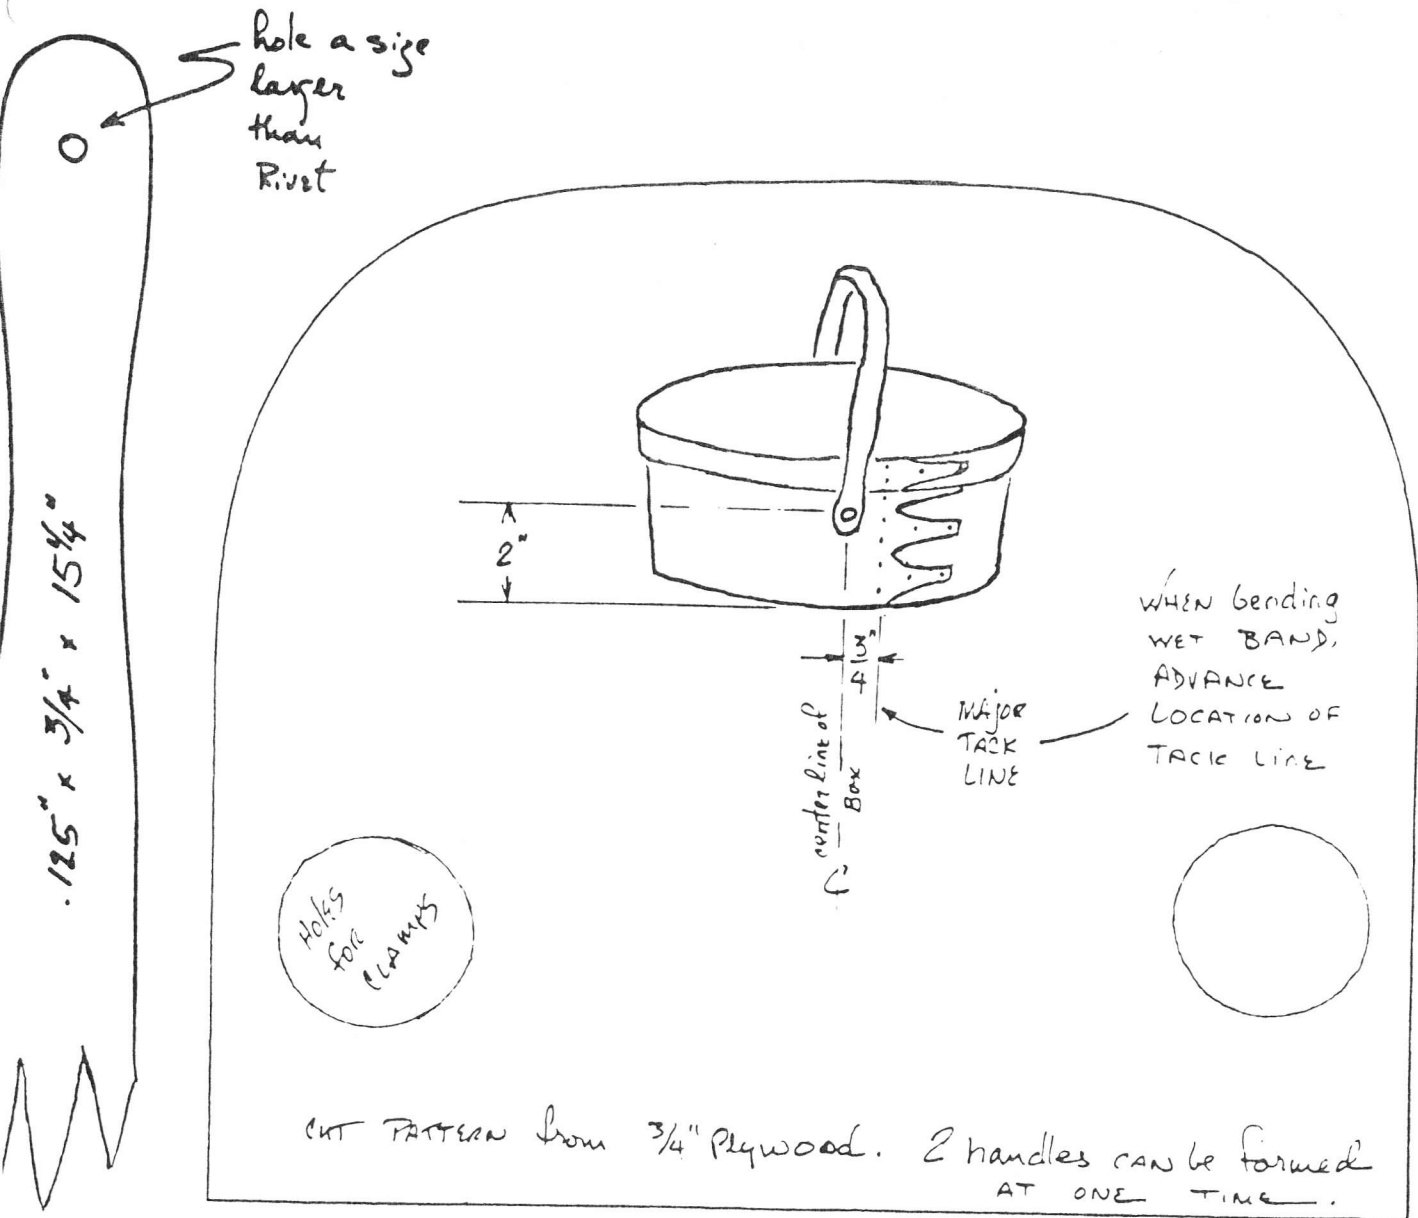 hole a size
larger
than
Rivet
.125" x 3/4" x 15 1/4"
2"
3"
4
center line of
Box
℄
MAJOR
TACK
LINE
WHEN bending
WET BAND,
ADVANCE
LOCATION OF
TACK LINE
HOLES
FOR
CLAMPS
CUT PATTERN from 3/4" Plywood. 2 handles CAN be formed
AT ONE TIME.